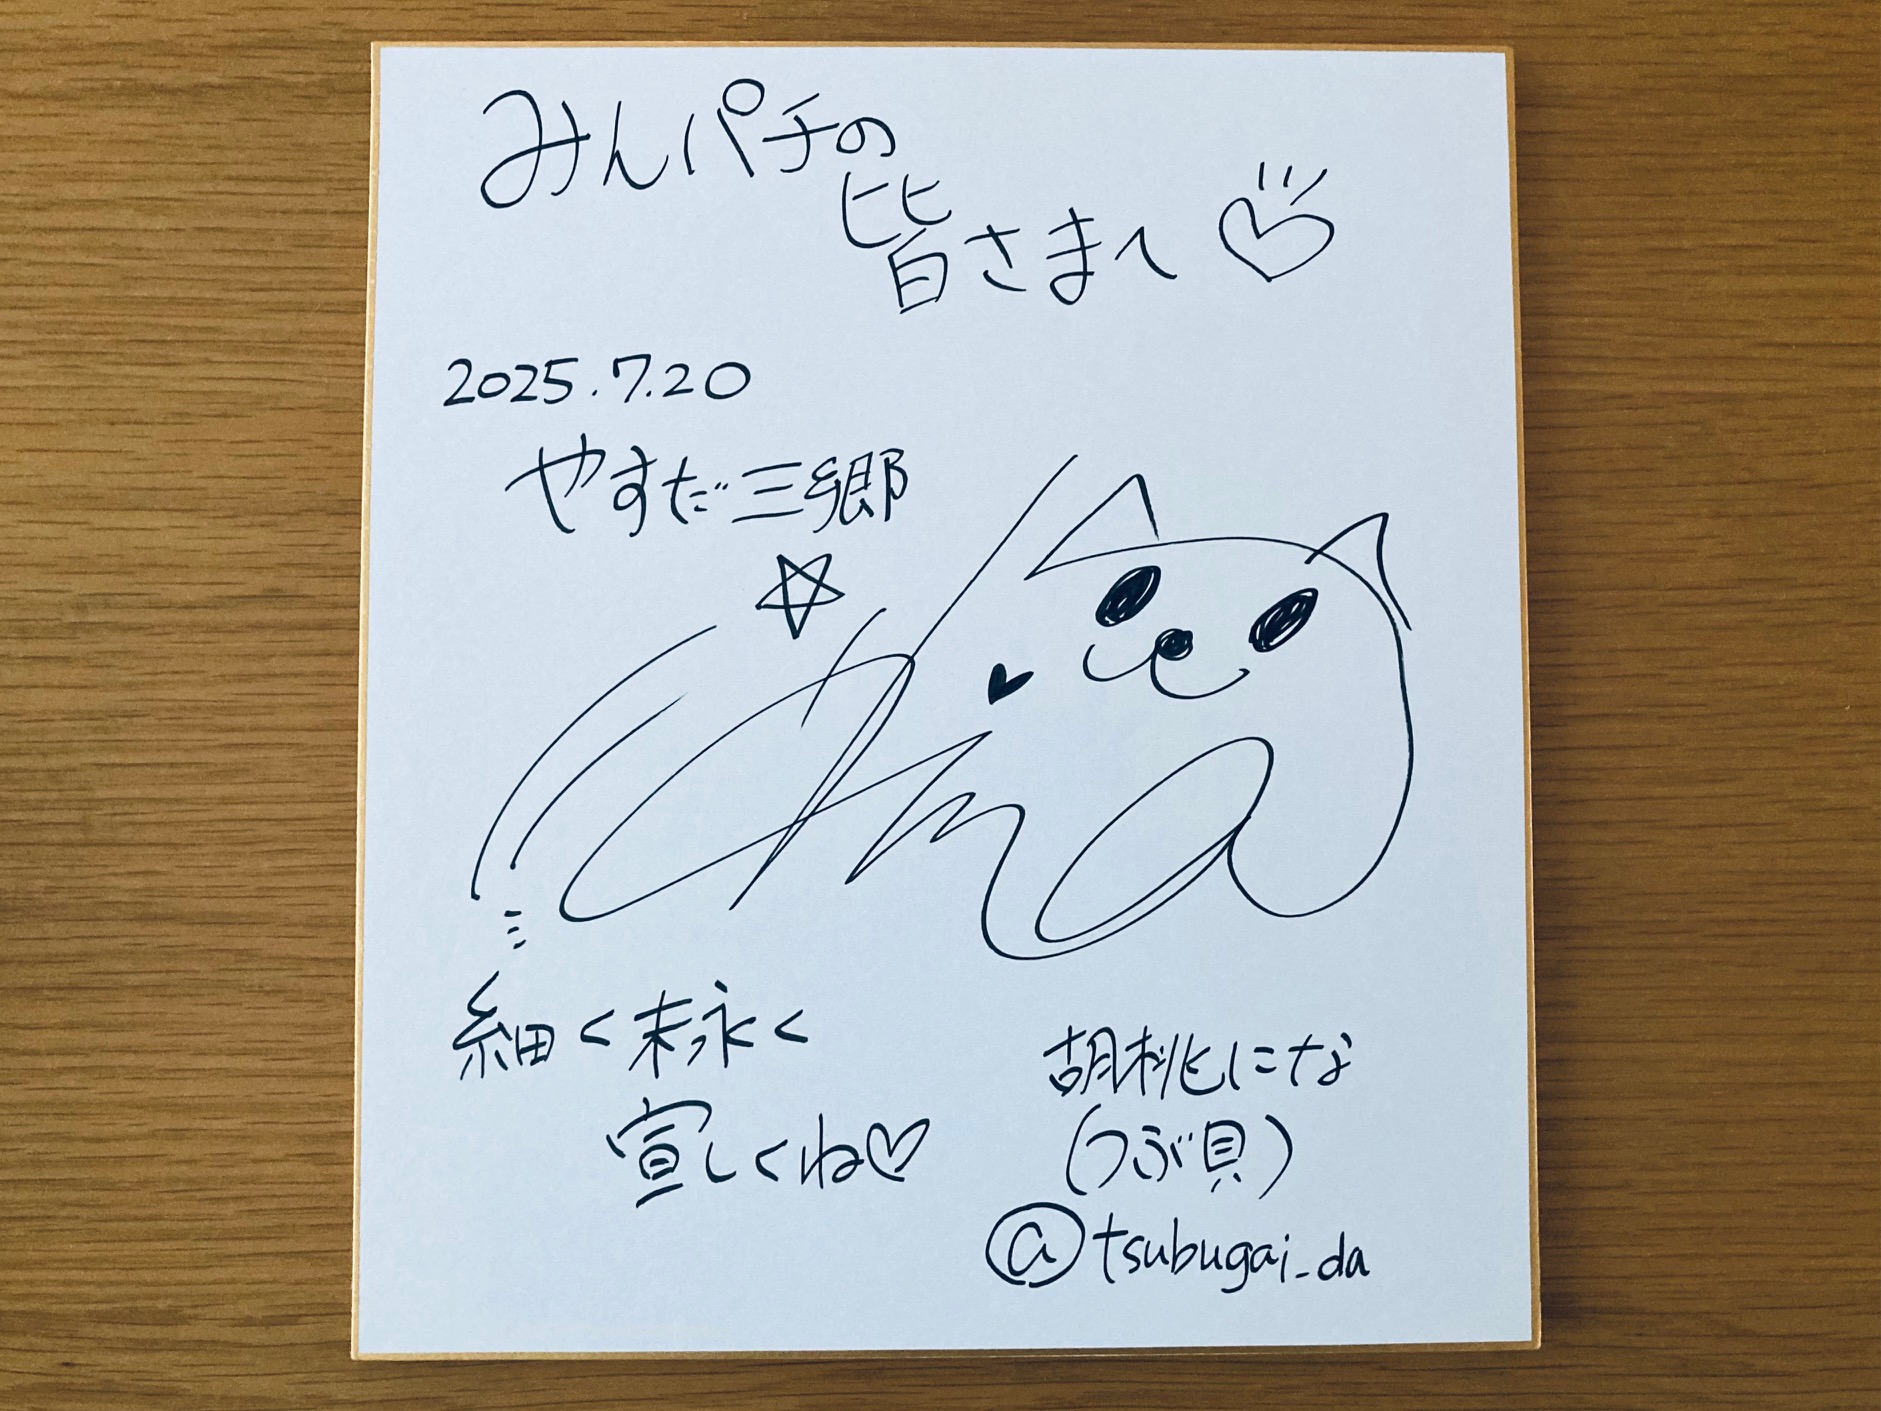 みんパチの
皆さまへ♡
2025.7.20
やすだ三郷
☆
細く末永く
宣しくね♡
胡桃にな
(つぶ貝)
@tsubugai_da